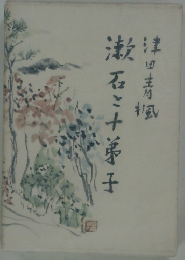 津田青楓
漱石と十弟子